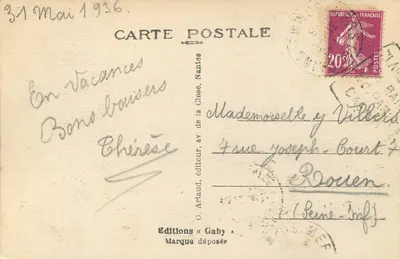 31 Mai 1936.
CARTE POSTALE
RÉPUBLIQUE FRANÇAISE
20c
En Vacances
Bons baisers
Thérèse
G. Artaud, éditeur, av. de la Close, Nantes
Mademoiselle y Villers
7 rue Joseph-Court 7
Rouen
(Seine-Inf)
Editions « Gaby »
Marque déposée